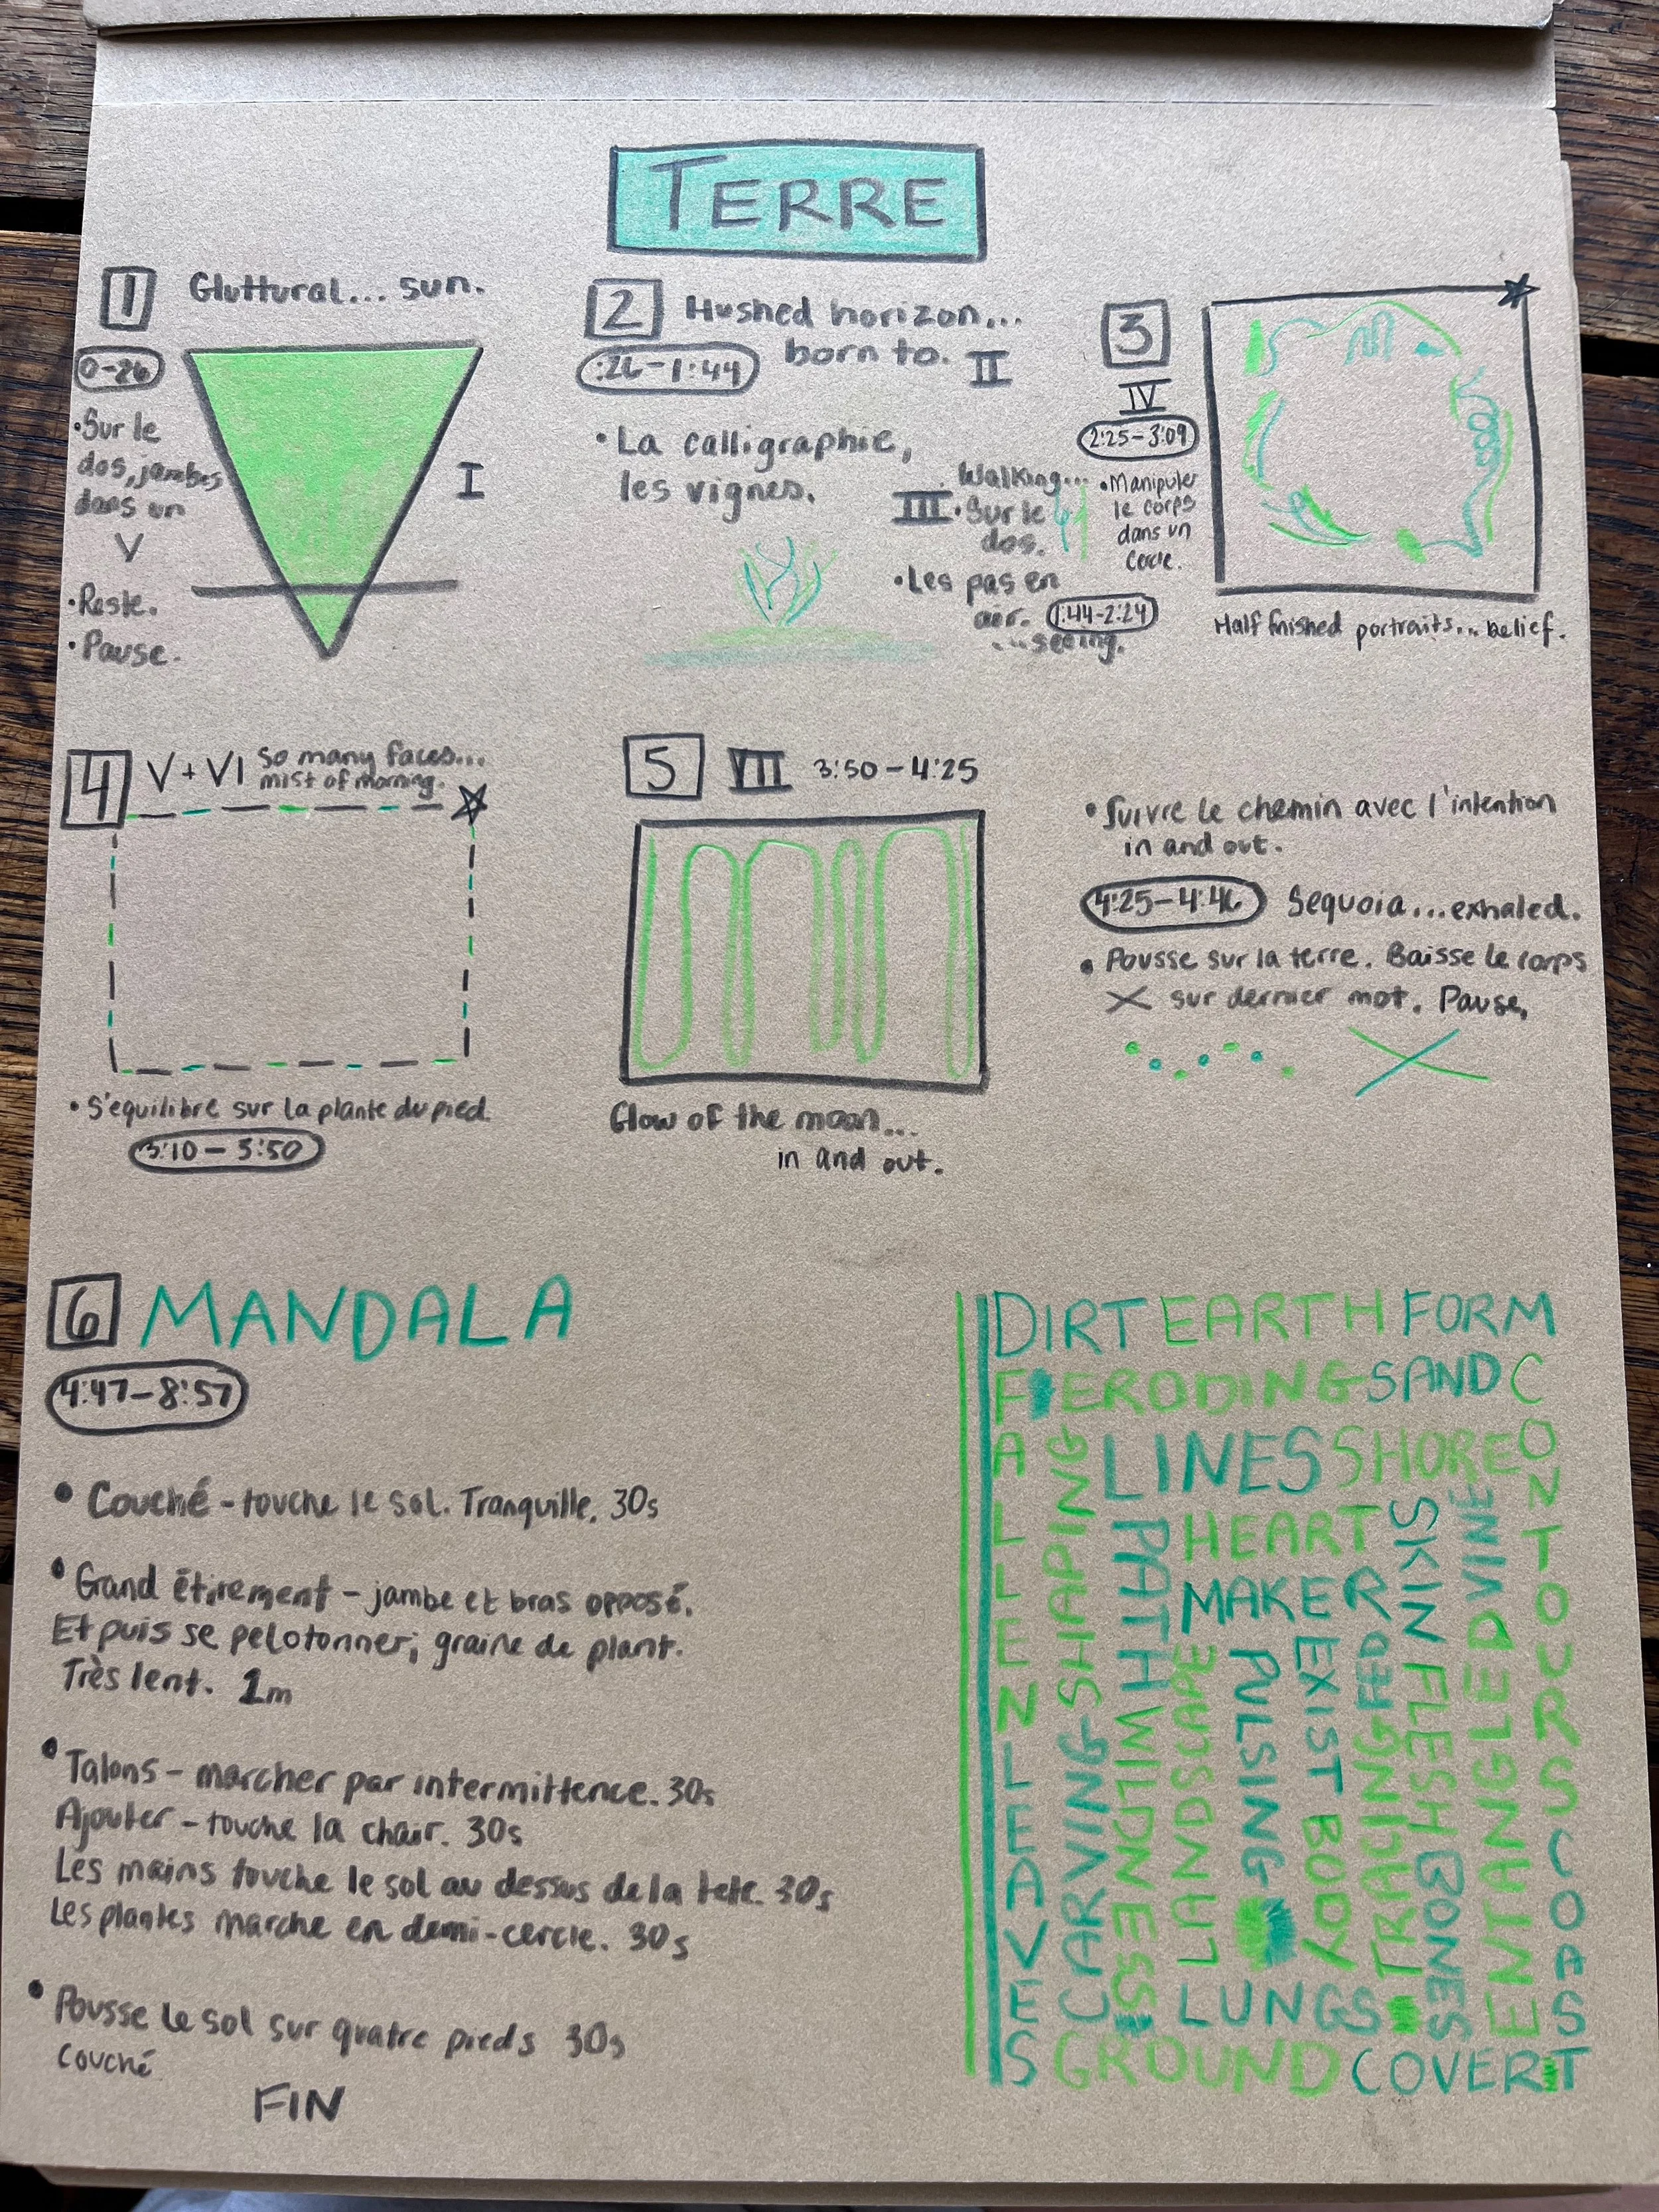 TERRE
1 Gluttural... sun.
0-26
• Sur le
dos, jambes
dans un
V
• Reste.
• Pause.
I
2 Hushed horizon...
born to. II
:26-1:44
• La calligraphie,
les vignes.
Walking...
III • Sur le
dos.
• Les pas en
air. 1:44-2:24
...seeing.
3
IV
2:25-3:09
• Manipuler
le corps
dans un
cercle.
Half finished portraits... belief.
4 V + VI So many faces...
mist of morning.
• S'equilibre sur la plante du pied
3:10 - 3:50
5 VII 3:50-4:25
Glow of the moon...
in and out.
• Suivre le chemin avec l'intention
in and out.
4:25-4:46 Sequoia... exhaled.
• Pousse sur la terre. Baisse le corps
X sur dernier mot. Pause.
6 MANDALA
4:47-8:57
• Couché - touche le sol. Tranquille. 30s
• Grand étirement - jambe et bras opposé.
Et puis se pelotonner; graine de plant.
Très lent. 1m
• Talons - marcher par intermittence. 30s
Ajouter - touche la chair. 30s
Les mains touche le sol au dessus de la tete. 30s
Les plantes marche en demi-cercle. 30s
• Pousse le sol sur quatre pieds 30s
couché
FIN
DIRT EARTH FORM
CONTOURS COAST
FALLEN LEAVES
ERODING SAND
SHAPING
CARVING
LINES SHORE
PATH
WINDLINESSES
HEART
MAKER
LANDSCAPE
PULSING
EXIST BODY
FED
TRACING
SKIN FLESH BONES
DIVINE
ENTANGLED
LUNGS
GROUND COVER